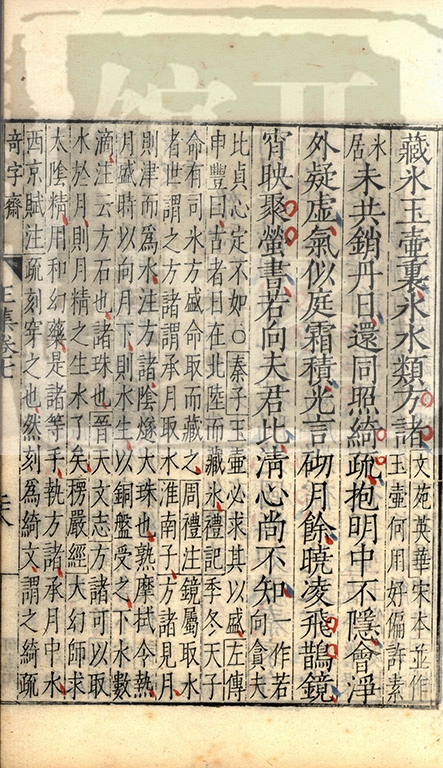 藏冰玉壺裏冰水類方諸
文苑英華宋本並作
玉壺何用好偏許素
冰
居
未共銷丹日還同照綺疏抱明中不隱會淨
外疑虛氣似庭霜積光言砌月餘曉凌飛鵲鏡
宵映聚螢書若向夫君比清心尚不知
一作若
向貪夫
比貞心定不如○秦子玉壺必求其以盛左傳
申豐曰古者日在北陸而藏冰禮記季冬天子
命有司冰方盛命取而藏之周禮注鏡屬取水
者世謂之方諸謂承月取水淮南子方諸見月
則津而為水注方諸陰燧大珠也熟摩拭令熱
月盛時以向月下則水生以銅盤受之下水數
滴注云方石也諸珠也晉天文志方諸可以取
水於月則月精之生水了矣楞嚴經大幻師求
太陰精用和幻藥是諸等手執方諸承月中水
西京賦注疏刻穿之也然刻為綺文謂之綺疏
奇字齋
王集卷七